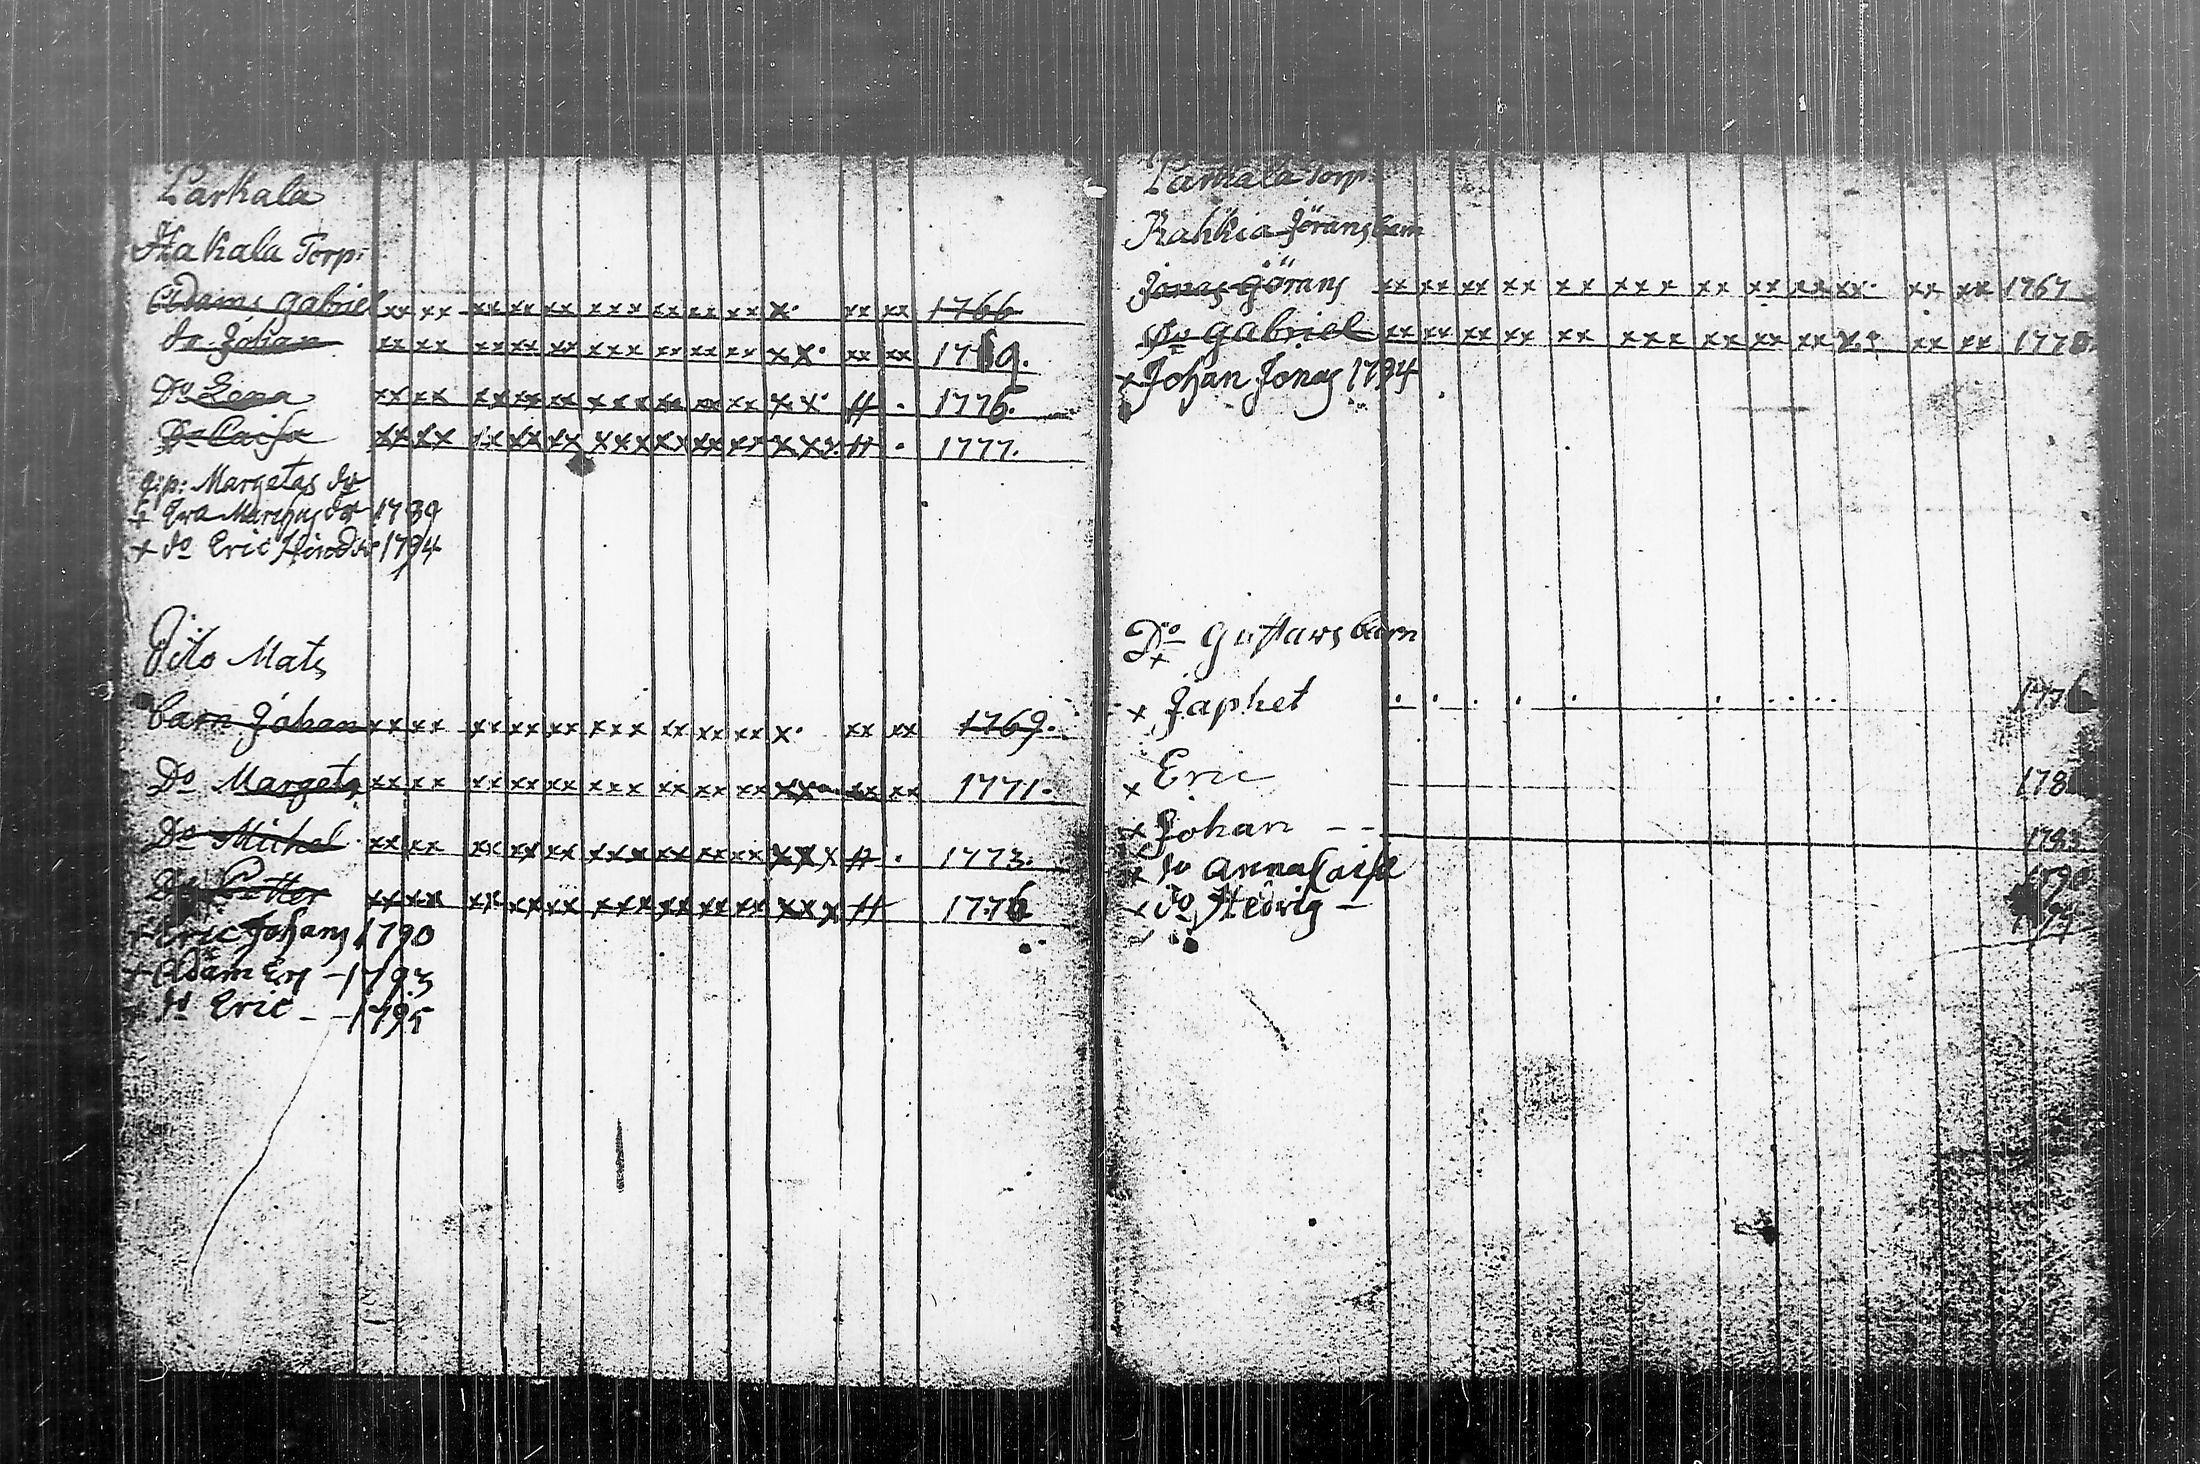 Parkala
Hakala Torp:
Adams Gabriel xx xx xx xx xx xxx xx xx xx x· xx xx 1766
do Johan xx xx xx xx xx xxx xx xx xx xx· xx xx 1769.
Do Lena xx xx xx xx xx xxx xx xx xx xx· H · 1775.
Do Caisa xx xx xx xx xx xxx xx xx xx xxx H · 1777.
Margetas dr
+ dr 1789
+ do Eric 1794
Dito Mats
barn Johan xx xx xx xx xx xxx xx xx xx x· xx xx 1769.
Do Margeta xx xx xx xx xx xxx xx xx xx xx xx xx 1771.
Do Michel xx xx xx xx xx xxx xx xx xx xxx H · 1773.
Do Petter xx xx xx xx xx xxx xx xx xx xxx H 1776
+ Eric Johans 1790
+ Adam Ers - 1793
do Eric - - 1795
Parkala Torp:
Kahkia Jörans barn
Jonas Görans xx xx xx xx xx xxx xx xx xx xx· xx xx 1767
Do Gabriel xx xx xx xx xx xxx xx xx xx x· xx xx
x Johan Jonas 1794
Do Gustaws barn
+
x Japhet
x Eric
x Johan - - 1793
x do Anna Caisa 1790
x do Hedvig -